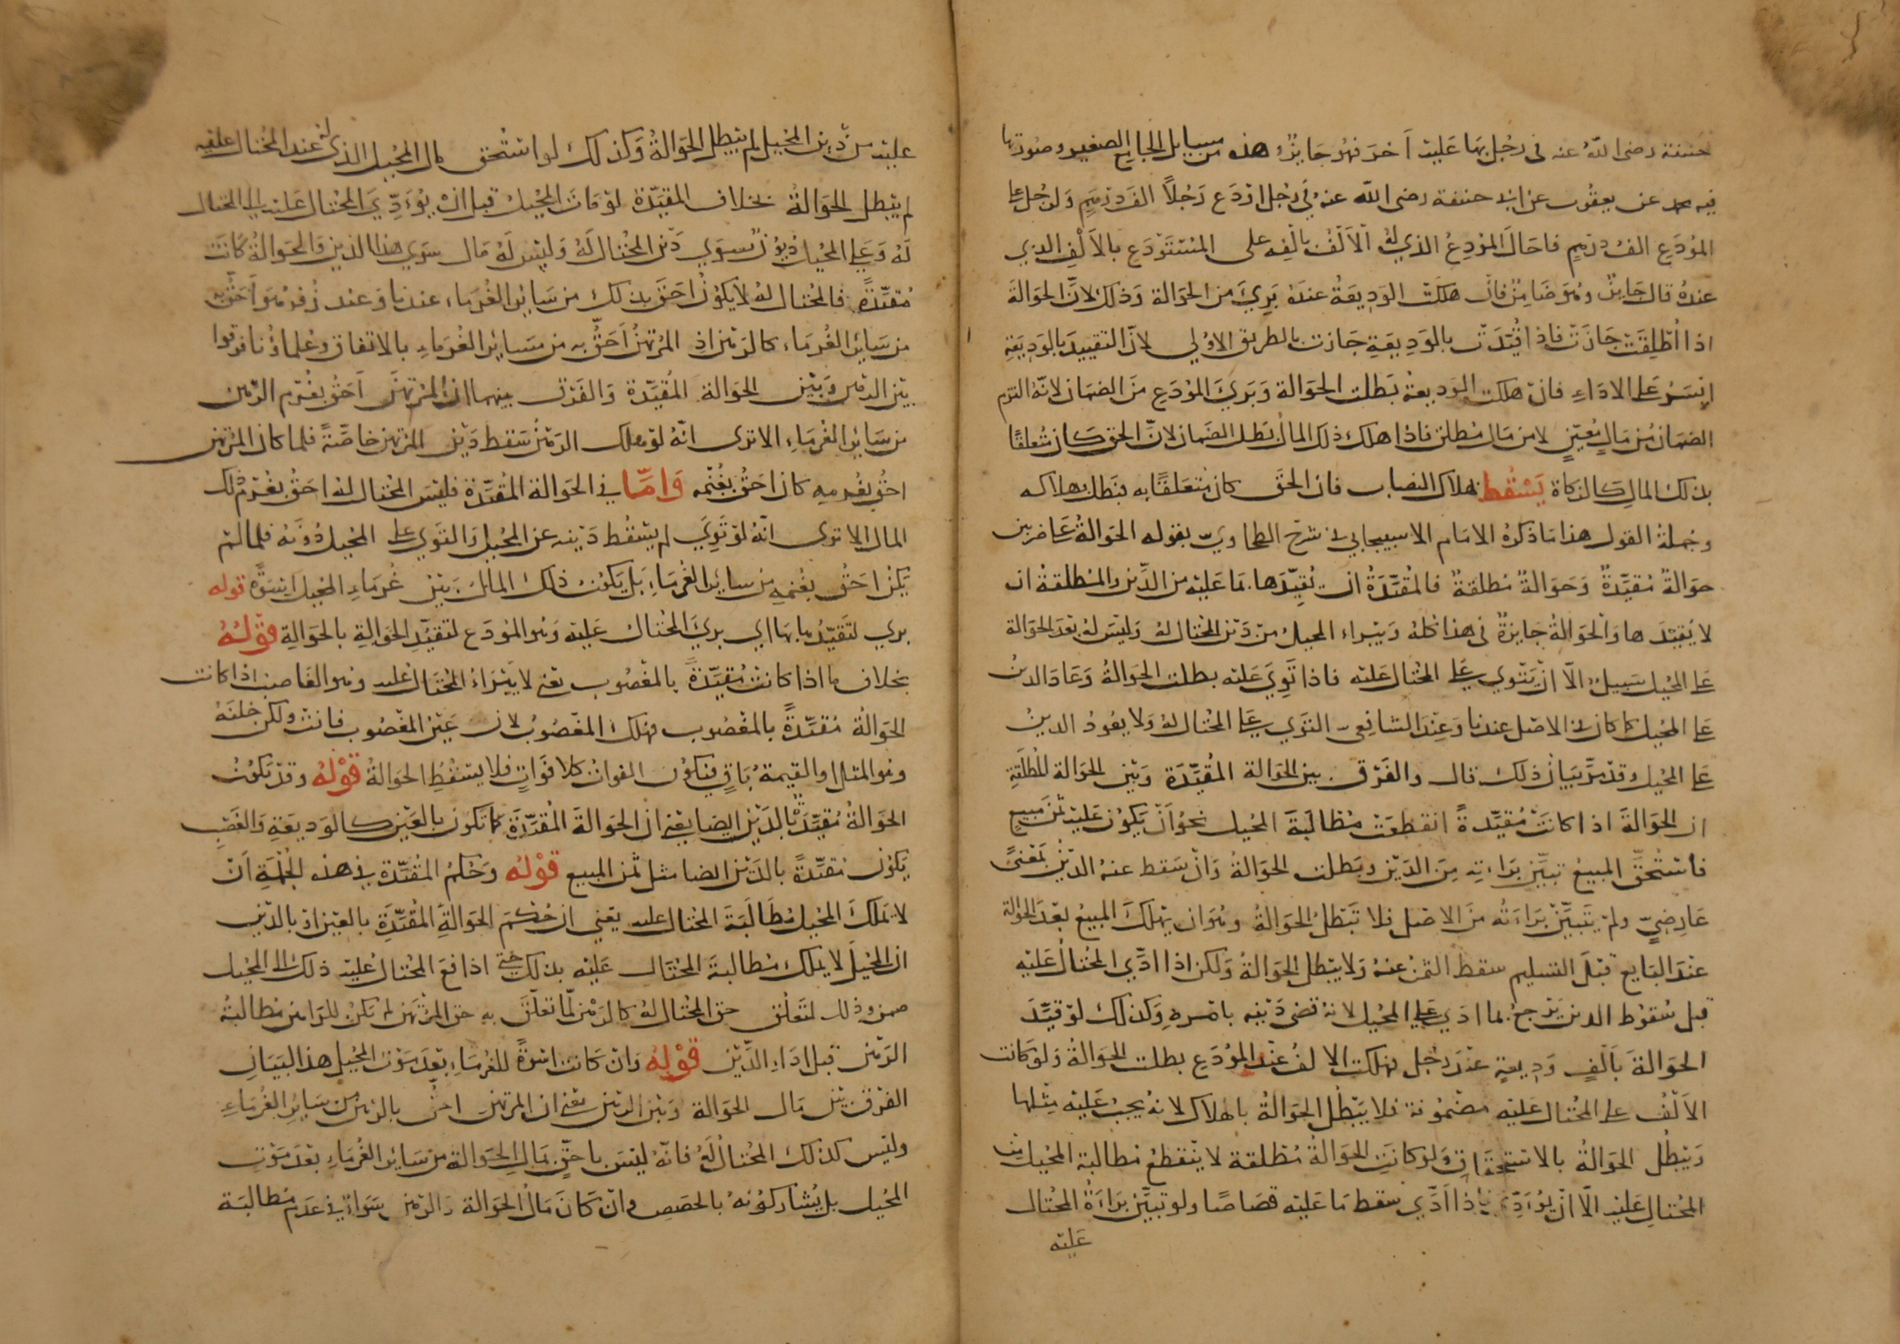 حنيفة رضى الله عنه فى رجل بها عليه آخر فهو جايز هذه من مسايل الجامع الصغير وصورتها
فيه محمد عن يعقوب عن ابى حنيفة رضى الله عنه فى رجل اودع رجلاً الف درهم ولرجل على
المودع الف درهم فاحال المودع الذي له الالف بالفه على المستودع بالالف الذي
عنده قال جايز وهو ضامن فان هلكت الوديعة عنده بريَ من الحوالة وذلك لانّ الحوالة
اذا اُطلِقَتْ جازت فاذا قُيّدَتْ بالوديعةِ جازت بالطريق الاولى لانّ التقييد بالوديعةِ
ايسر على الاداءِ فان هلكت الوديعة بطلت الحوالة وبَرِيَ المودع من الضمان لانّه التزم
الضمان من مالٍ معيّنٍ لا من مال مطلق فاذا هلك ذلك المال بطل الضمان لانّ الحق كان متعلقا
بذلك المال كالزكاة يَسْقُط بهلاك النصاب فان الحق كان متعلقًا به فبطل بهلاكه
وجملةُ القول هذا ما ذكرهُ الامام الاسبيجابي فى شرح الطحاويّ بقوله الحوالةُ على ضربين
حوالةٌ مُقيّدةٌ وَحَوالةٌ مُطلقةٌ فالمُقيّدةُ ان يُقيِّدَها بما عليه من الدَّين والمُطلقةُ ان
لا يُقيّدها والحوالةُ جايزةٌ فى هذا كله ويبراء المحيل من دَين المختال له وليس له بعد الحوالة
على المحيل سبيلٌ الّا ان يَتْوي على المختال عليه فاذا تَوِيَ عليه بطلت الحوالةُ وعاد الدينُ
على المحيل كما كان فى الاصل عندنا وعند الشافعى التوي على المختال له ولا يعودُ الدينُ
على المحيل وقد مرّ بيان ذلك قال والفرق بين الحوالة المُقيّدة وبين الحوالة المُطلقةِ
ان الحوالةَ اذا كانتْ مُقيّدةً انقطعت مطالبةُ المحيل نحو أنْ يكون عليه ثمن مبيعٍ
فاستُحِقّ المبيعُ تبيّن براءته مِنَ الدَيْن وبطلت الحوالةُ وانْ سقط عنه الديْنُ بمعنىً
عارضيٍّ ولم يتبيّن بَرَاءته من الاصل فلا تبطلُ الحوالةُ وهو ان يهلكَ المبيعُ بعدَ الحوالة
عند البايع قبل التسليم سقط الثمنُ عنهُ ولا يبطل الحوالةُ ولكن اذا ادّى المُختالُ عليه
قبل سُقوط الدين يرجعُ بما ادّى على المحيل لانه قضى دَيْنه بامره وكذلك لو قيّدَ
الحوالةَ بالفٍ وديعةٍ عند رجلٍ فهلكت الالفُ عند المودعِ بطلت الحوالةُ ولو كانت
الالفُ على المختال عليه مضمونة فلا يبطل الحوالةُ بالهلاك لانه يجبُ عليه مثلها
وتبطل الحوالةُ بالاستحقاق ولو كانتِ الحوالةُ مُطلقة لا ينقطعُ مطالبةُ المحيل من
المُختالِ عليه الّا أنْ يُؤدّى فاذا ادّى سقط ما عليه قصاصًا ولو تبيّن بَراءةُ المختال
عليه
عليه من دَين المحيل لم يبطل الحوالةُ وكذلك لو استُحق مال المحيل الذى له عند المختال عليه
لم يبطل الحوالةُ بخلاف المقيدة لو مات المحيل قبل أن يؤدّيَ المختال عليه الى المختال
له وعلى المحيل ديونٌ سِوى دَين المختال له وليس له مال سوى هذا الدين والحوالة كانت
مُقيّدةً فالمختال له لا يكونُ احق بذلك من سائر الغرماء عندنا وعند زفر هو احقّ به
من سائر الغرماء كالرهن اذ المرتهن أحقُّ به من سائر الغرماءِ بالاتفاق وعلماؤنا فرقوا
بين الرهن وبين الحوالة المُقيّدة والفرق بينهما ان المرتهن أحقُّ بغُرْم الرهن
من سائر الغرماء الا ترى انّه لو هلك الرهنُ سقط دَينُ المرتهن خاصّةً فلما كان المرتهن
احقُّ بغُرمِه كان احقّ بغُنْمه وَامّا فى الحوالة المُقيّدة فليس المختال له احقُّ بغُرم ذلك
المال الا ترى انّه لو تَوِيَ لم يسقُط دَينه عن المحيل والتوى على المحيل دُونَه فلما لم
يكن احقُّ بغُرمه من سائر الغرماءِ بل يكون ذلك المال بين غُرماءِ المحيل اسوةً قوله
برى لتَقيّدها بها اى بريَ المختال عليه وهو المودَع لتقيّد الحوالةِ بالحوالةِ قولهُ
بخلاف ما اذا كانت مُقيّدةً بالمغصوب يعنى لا يَبْرَاءُ المختال عليه وهو الغاصب اذا كانت
الحوالةُ مُقيّدةً بالمغصوب فهلك المغصوبُ لان عَيْن المغصوب فانت ولكن خلفهُ
وهو المثل او القيمةُ باقٍ فيكون الفوات كلا فَواتٍ فلا يسقُط الحوالةُ قَوْلهُ وقد تكونُ
الحوالةُ مُقيّدةً بالدَيْن ايضا يعنى ان الحوالةَ المُقيّدةَ كما تكون بالعين كالوديعةِ والغَصْبِ
يكونُ مُقيّدةً بالدَيْن ايضا مثل ثمن المبيع قوْله وحكم المُقيّدة فى هذه الجُمْلةِ أنْ
لا يَملكَ المحيلُ مُطالَبَةَ المختال عليه يعني ان حُكْمَ الحوالةِ المُقيّدةِ بالعين او بالدَين
ان المحيلَ لا يملك مطالبةَ المختال عليه بذلك حتى اذا دفع المختال عليه ذلك الى المحيل
ضمن وذلك لتعلّق حق المختال له كالرهن لمّا تعلّقَ به حق المرتهن لم يكن للراهن مطالبةُ
الرهن قبل اداءِ الدَّيْن قَوْلهُ وان كانت اسْوةً للغرماءِ بعدَ موت المحيل هذا البيان
الفرق بين مال الحوالة وبين الرهن يعنى ان المرتهن احقُّ بالرهن من سائر الغرماءِ
وليس كذلك المختالُ لهُ فانّه ليسَ باحقّ بمال الحوالة من سائر الغرماءِ بعد موت
المحيل بل يُشاركونهُ بالحصص وان كان مالُ الحوالة والرهن سواءً فى عدم مطالبة